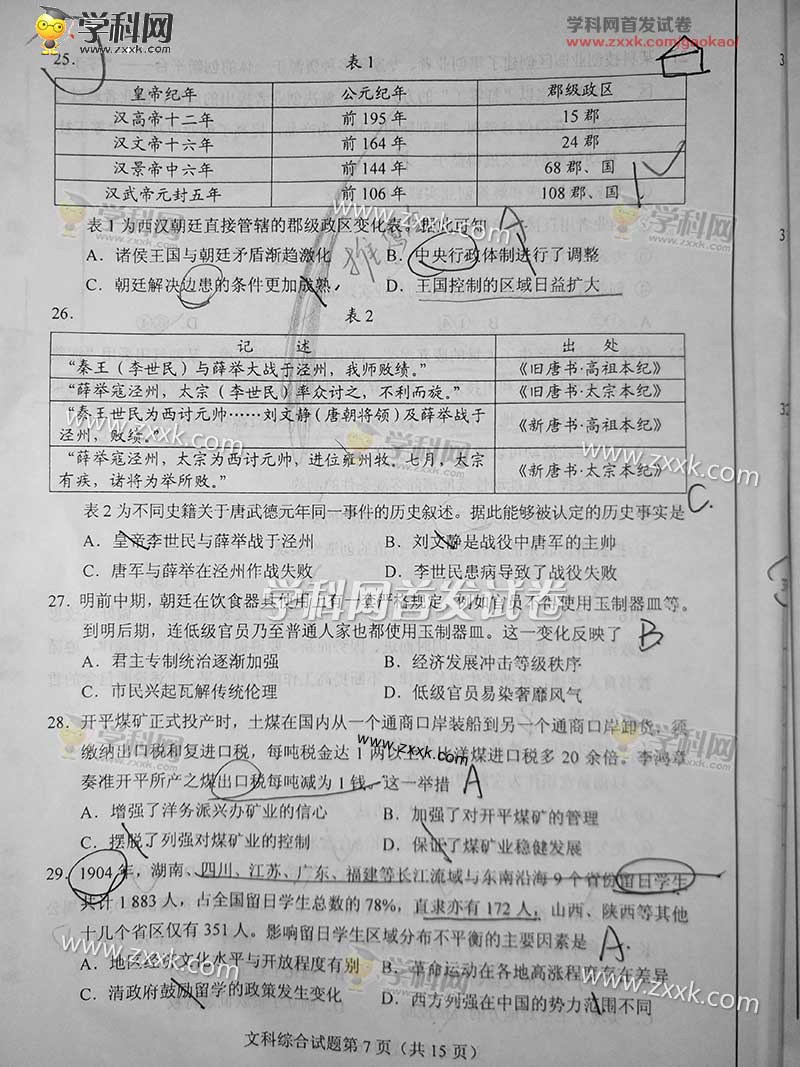 学科网
www.zxxk.com
学科网首发试卷
www.zxxk.com/gaokao/
25.
表 1
皇帝纪年 公元纪年 郡级政区
汉高帝十二年 前 195 年 15 郡
汉文帝十六年 前 164 年 24 郡
汉景帝中六年 前 144 年 68 郡、国
汉武帝元封五年 前 106 年 108 郡、国
表 1 为西汉朝廷直接管辖的郡级政区变化表。据此可知 A
A. 诸侯王国与朝廷矛盾渐趋激化 B. 中央行政体制进行了调整
C. 朝廷解决边患的条件更加成熟 D. 王国控制的区域日益扩大
26.
表 2
记 述 出 处
“秦王（李世民）与薛举大战于泾州，我师败绩。” 《旧唐书·高祖本纪》
“薛举寇泾州，太宗（李世民）率众讨之，不利而旋。” 《旧唐书·太宗本纪》
“秦王世民为西讨元帅……刘文静（唐朝将领）及薛举战于
泾州，败绩。” 《新唐书·高祖本纪》
“薛举寇泾州，太宗为西讨元帅，进位雍州牧。七月，太宗
有疾，诸将为举所败。” 《新唐书·太宗本纪》
表 2 为不同史籍关于唐武德元年同一事件的历史叙述。据此能够被认定的历史事实是 C.
A. 皇帝李世民与薛举战于泾州 B. 刘文静是战役中唐军的主帅
C. 唐军与薛举在泾州作战失败 D. 李世民患病导致了战役失败
学科网首发试卷
27. 明前中期，朝廷在饮食器具使用上有一套严格规定，例如官员不得使用玉制器皿等。
到明后期，连低级官员乃至普通人家也都使用玉制器皿。这一变化反映了 B
A. 君主专制统治逐渐加强 B. 经济发展冲击等级秩序
C. 市民兴起瓦解传统伦理 D. 低级官员易染奢靡风气
28. 开平煤矿正式投产时，土煤在国内从一个通商口岸装船到另一个通商口岸卸货，须
缴纳出口税和复进口税，每吨税金达 1 两以上，比洋煤进口税多 20 余倍。李鸿章
奏准开平所产之煤出口税每吨减为 1 钱。这一举措 A
A. 增强了洋务派兴办矿业的信心 B. 加强了对开平煤矿的管理
C. 摆脱了列强对煤矿业的控制 D. 保证了煤矿业稳健发展
29. 1904 年，湖南、四川、江苏、广东、福建等长江流域与东南沿海 9 个省份留日学生
共计 1 883 人，占全国留日学生总数的 78%，直隶亦有 172 人，山西、陕西等其他
十几个省区仅有 351 人。影响留日学生区域分布不平衡的主要因素是 A.
A. 地区经济文化水平与开放程度有别 B. 革命运动在各地高涨程度存在差异
C. 清政府鼓励留学的政策发生变化 D. 西方列强在中国的势力范围不同
文科综合试题第 7 页（共 15 页）